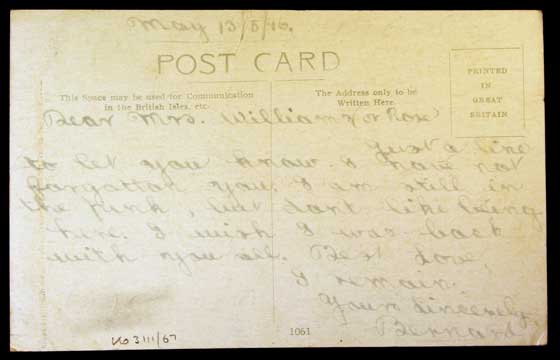 May 13/5/16.
POST CARD
This Space may be used for Communication
in the British Isles, etc.
The Address only to be
Written Here.
PRINTED
IN
GREAT
BRITAIN
Dear Mrs. Williams (or Rose)
Just a line
to let you know I have not
forgotton you. I am still in
the pink, but dont like being
here. I wish I was back
with you all. Best Love,
I remain.
Yours Sincerely,
Bernard
1061
3111/67